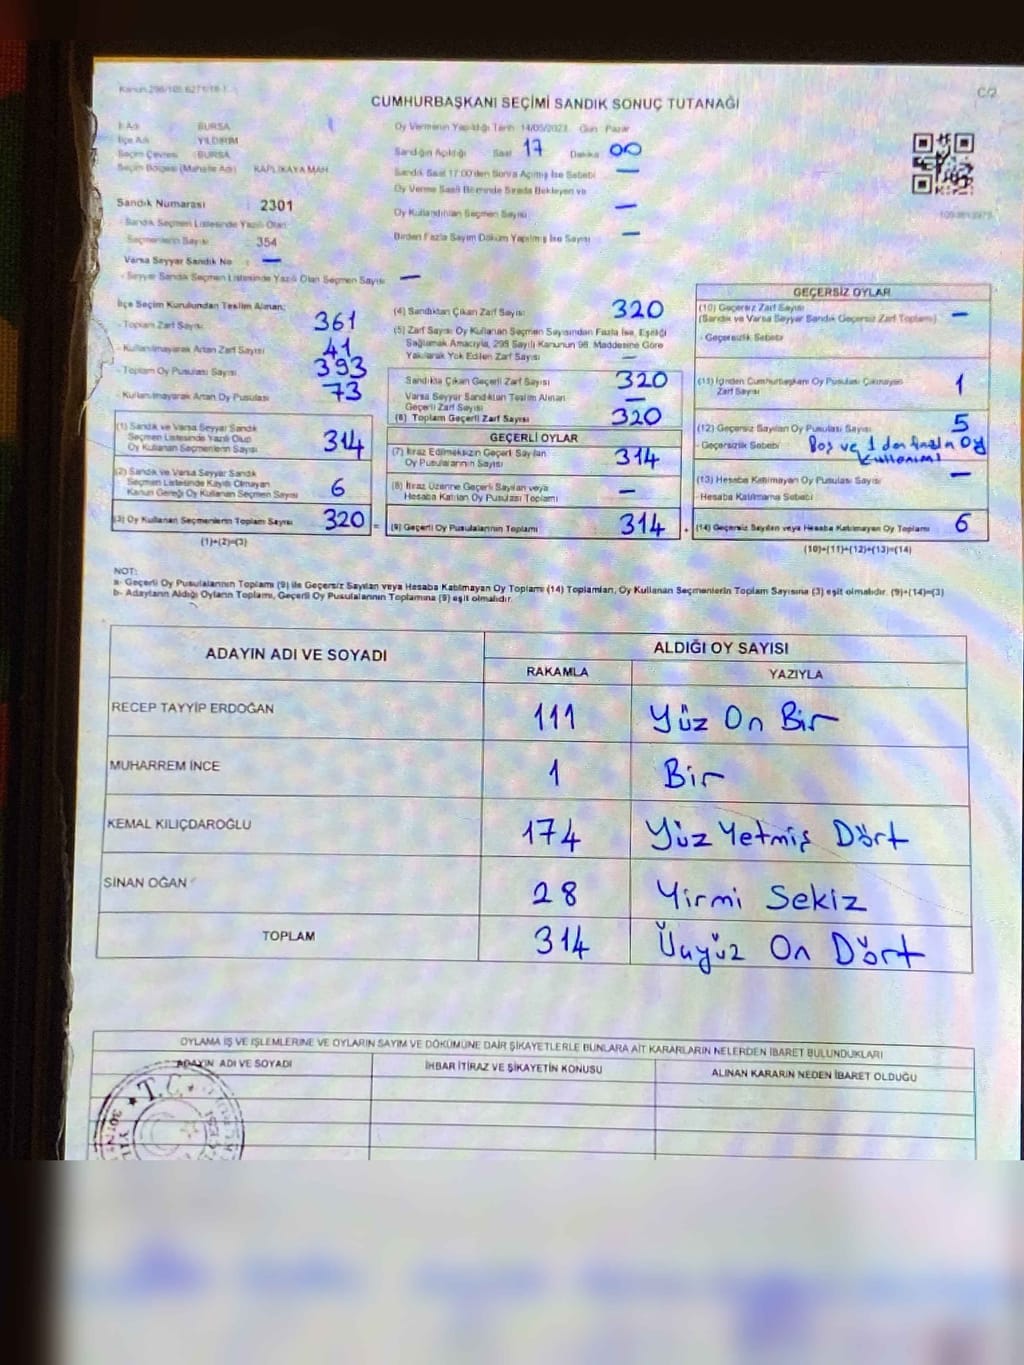 CUMHURBAŞKANI SEÇİMİ SANDIK SONUÇ TUTANAĞI
C/2
İl Adı : BURSA
İlçe Adı YILDIRIM
Seçim Çevresi : BURSA
Seçim Bölgesi (Mahalle Adı) KAPLIKAYA MAH.
Sandık Numarası : 2301
- Sandık Seçmen Listesinde Yazılı Olan
Seçmenlerin Sayısı 354
Varsa Seyyar Sandık No : —
- Seyyar Sandık Seçmen Listesinde Yazılı Olan Seçmen Sayısı —
Oy Vermenin Yapıldığı Tarih 14/05/2023 Gün Pazar
Sandığın Açıldığı Saat 17 Dakika 00
Sandık Saat 17:00'den Sonra Açılmış İse Sebebi —
Oy Verme Saati Bitiminde Sırada Bekleyen ve
Oy Kullandırılan Seçmen Sayısı —
Birden Fazla Sayım Döküm Yapılmış İse Sayısı —
İlçe Seçim Kurulundan Teslim Alınan;
- Toplam Zarf Sayısı 361
- Kullanılmayarak Artan Zarf Sayısı 41
- Toplam Oy Pusulası Sayısı 393
- Kullanılmayarak Artan Oy Pusulası 73
(1) Sandık ve Varsa Seyyar Sandık
Seçmen Listesinde Yazılı Olup
Oy Kullanan Seçmenlerin Sayısı 314
(2) Sandık ve Varsa Seyyar Sandık
Seçmen Listesinde Kayıtlı Olmayan
Kanun Gereği Oy Kullanan Seçmen Sayısı 6
(3) Oy Kullanan Seçmenlerin Toplam Sayısı 320 =
(1)+(2)=(3)
(4) Sandıktan Çıkan Zarf Sayısı 320
(5) Zarf Sayısı Oy Kullanan Seçmen Sayısından Fazla İse, Eşitliği
Sağlamak Amacıyla, 298 Sayılı Kanunun 98. Maddesine Göre
Yakılarak Yok Edilen Zarf Sayısı —
Sandıkta Çıkan Geçerli Zarf Sayısı 320
Varsa Seyyar Sandıktan Teslim Alınan
Geçerli Zarf Sayısı —
(6) Toplam Geçerli Zarf Sayısı 320
GEÇERLİ OYLAR
(7) İtiraz Edilmeksizin Geçerli Sayılan
Oy Pusulalarının Sayısı 314
(8) İtiraz Üzerine Geçerli Sayılan veya
Hesaba Katılan Oy Pusulası Toplamı —
(9) Geçerli Oy Pusulalarının Toplamı 314
GEÇERSİZ OYLAR
(10) Geçersiz Zarf Sayısı
(Sandık ve Varsa Seyyar Sandık Geçersiz Zarf Toplamı) —
- Geçersizlik Sebebi
(11) İçinden Cumhurbaşkanı Oy Pusulası Çıkmayan
Zarf Sayısı 1
(12) Geçersiz Sayılan Oy Pusulası Sayısı 5
- Geçersizlik Sebebi Boş ve 1 den fazla Oy
Kullanımı
(13) Hesaba Katılmayan Oy Pusulası Sayısı —
- Hesaba Katılmama Sebebi
(14) Geçersiz Sayılan veya Hesaba Katılmayan Oy Toplamı 6
(10)+(11)+(12)+(13)=(14)
NOT:
a- Geçerli Oy Pusulalarının Toplamı (9) ile Geçersiz Sayılan veya Hesaba Katılmayan Oy Toplamı (14) Toplamları, Oy Kullanan Seçmenlerin Toplam Sayısına (3) eşit olmalıdır. (9)+(14)=(3)
b- Adayların Aldığı Oyların Toplamı, Geçerli Oy Pusulalarının Toplamına (9) eşit olmalıdır.
ADAYIN ADI VE SOYADI
ALDIĞI OY SAYISI
RAKAMLA YAZIYLA
RECEP TAYYİP ERDOĞAN 111 Yüz On Bir
MUHARREM İNCE 1 Bir
KEMAL KILIÇDAROĞLU 174 Yüz Yetmiş Dört
SİNAN OĞAN 28 Yirmi Sekiz
TOPLAM 314 Üçyüz On Dört
OYLAMA İŞ VE İŞLEMLERİNE VE OYLARIN SAYIM VE DÖKÜMÜNE DAİR ŞİKAYETLERLE BUNLARA AİT KARARLARIN NELERDEN İBARET BULUNDUKLARI
ADAYIN ADI VE SOYADI İHBAR İTİRAZ VE ŞİKAYETİN KONUSU ALINAN KARARIN NEDEN İBARET OLDUĞU
T.C.